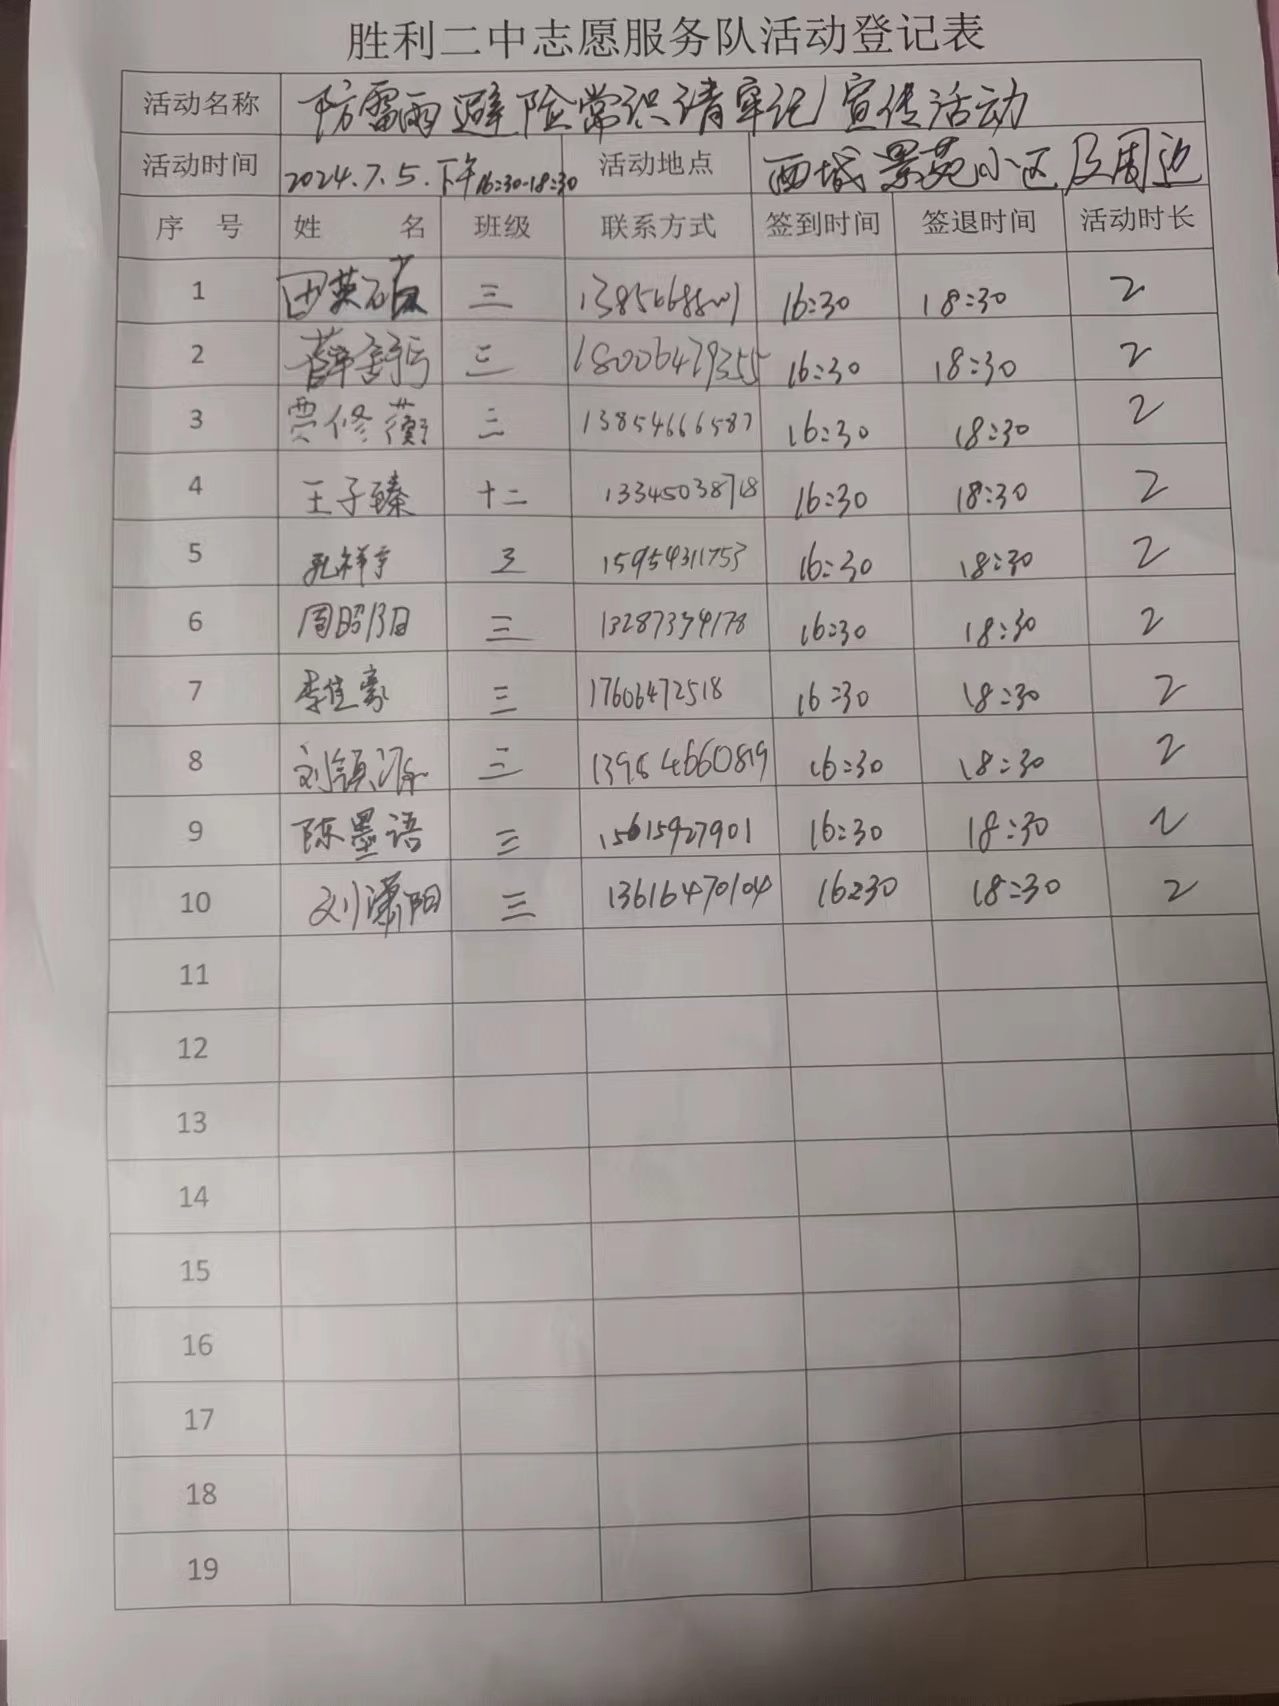 胜利二中志愿服务队活动登记表
活动名称 防雷雨避险常识请牢记宣传活动
活动时间 2024.7.5.下午16:30-18:30 活动地点 西城景苑小区及周边
序 号 姓 名 班级 联系方式 签到时间 签退时间 活动时长
1 三 16:30 18:30 2
2 三 18006479355 16:30 18:30 2
3 贾修蘅 三 13854666587 16:30 18:30 2
4 王子臻 十二 13345038718 16:30 18:30 2
5 孔祥宇 三 15954311753 16:30 18:30 2
6 周昭阳 三 13287394178 16:30 18:30 2
7 李佳豪 三 17606472518 16:30 18:30 2
8 三 13954660819 16:30 18:30 2
9 陈墨语 三 15615927901 16:30 18:30 2
10 刘潇阳 三 13616470104 16:30 18:30 2
11
12
13
14
15
16
17
18
19